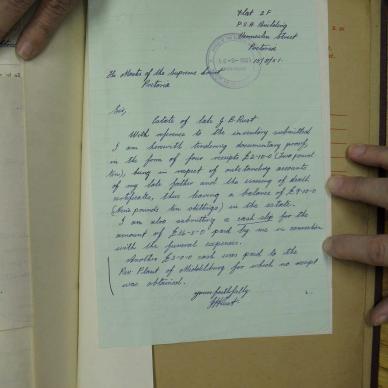 Flat 2F
P.S.A. Building
Vermeulen Street
Pretoria
15/9/51.
The Master of the Supreme Court
Pretoria
Sir,
Estate of late J B Rust
With reference to the inventory submitted
I am herewith tendering documentary proof,
in the form of four receipts £2-10-0 (Two pound
ten), being in respect of outstanding accounts
of my late father and the issuing of death
certificates, thus leaving a balance of £9-10-0
(Nine pounds ten shillings) in the estate.
I am also submitting a cash slip for the
amount of £26-5-0 paid by me in connection
with the funeral expenses.
Another £3-0-0 cash was paid to the
Rev Plant of Middelburg for which no receipt
was obtained.
Yours faithfully